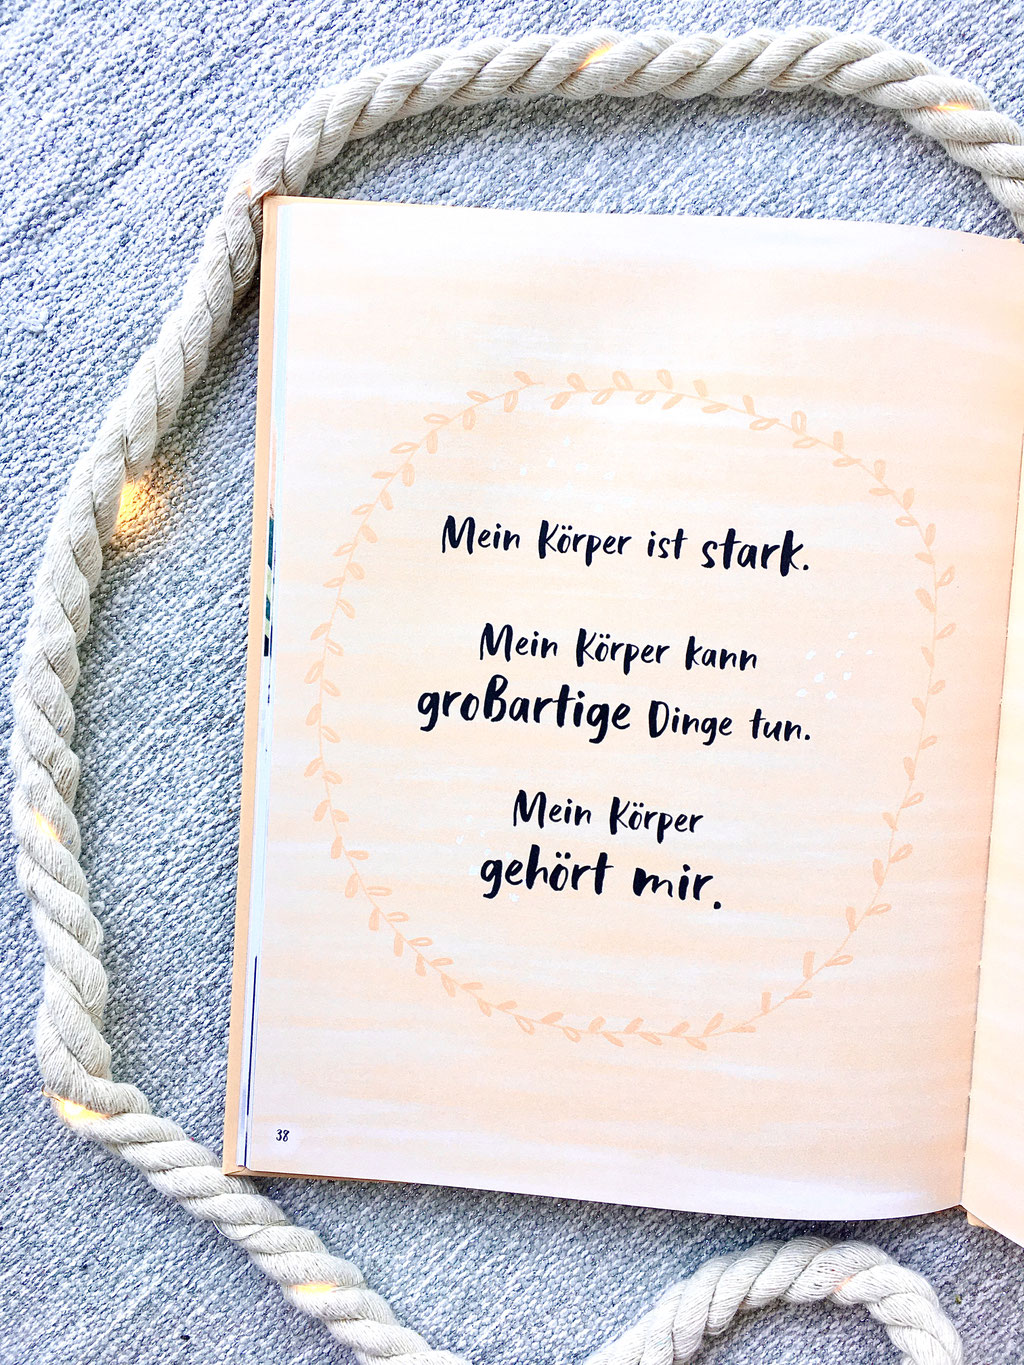 Mein Körper ist stark.
Mein Körper kann
großartige Dinge tun.
Mein Körper
gehört mir.
38